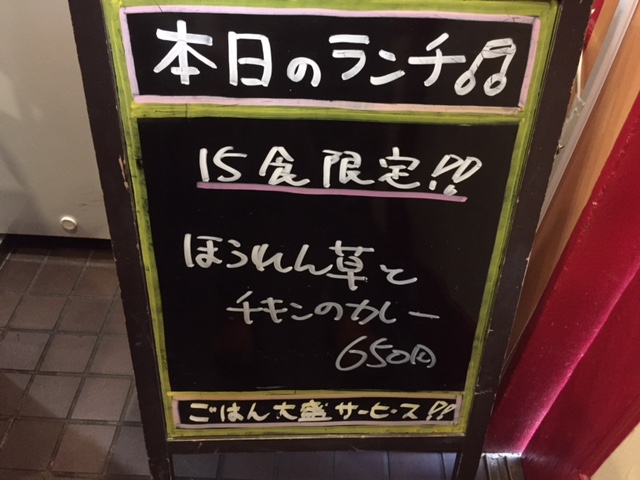 本日のランチ♫
15食限定!!
ほうれん草と
チキンのカレー
650円
ごはん大盛サービス!!